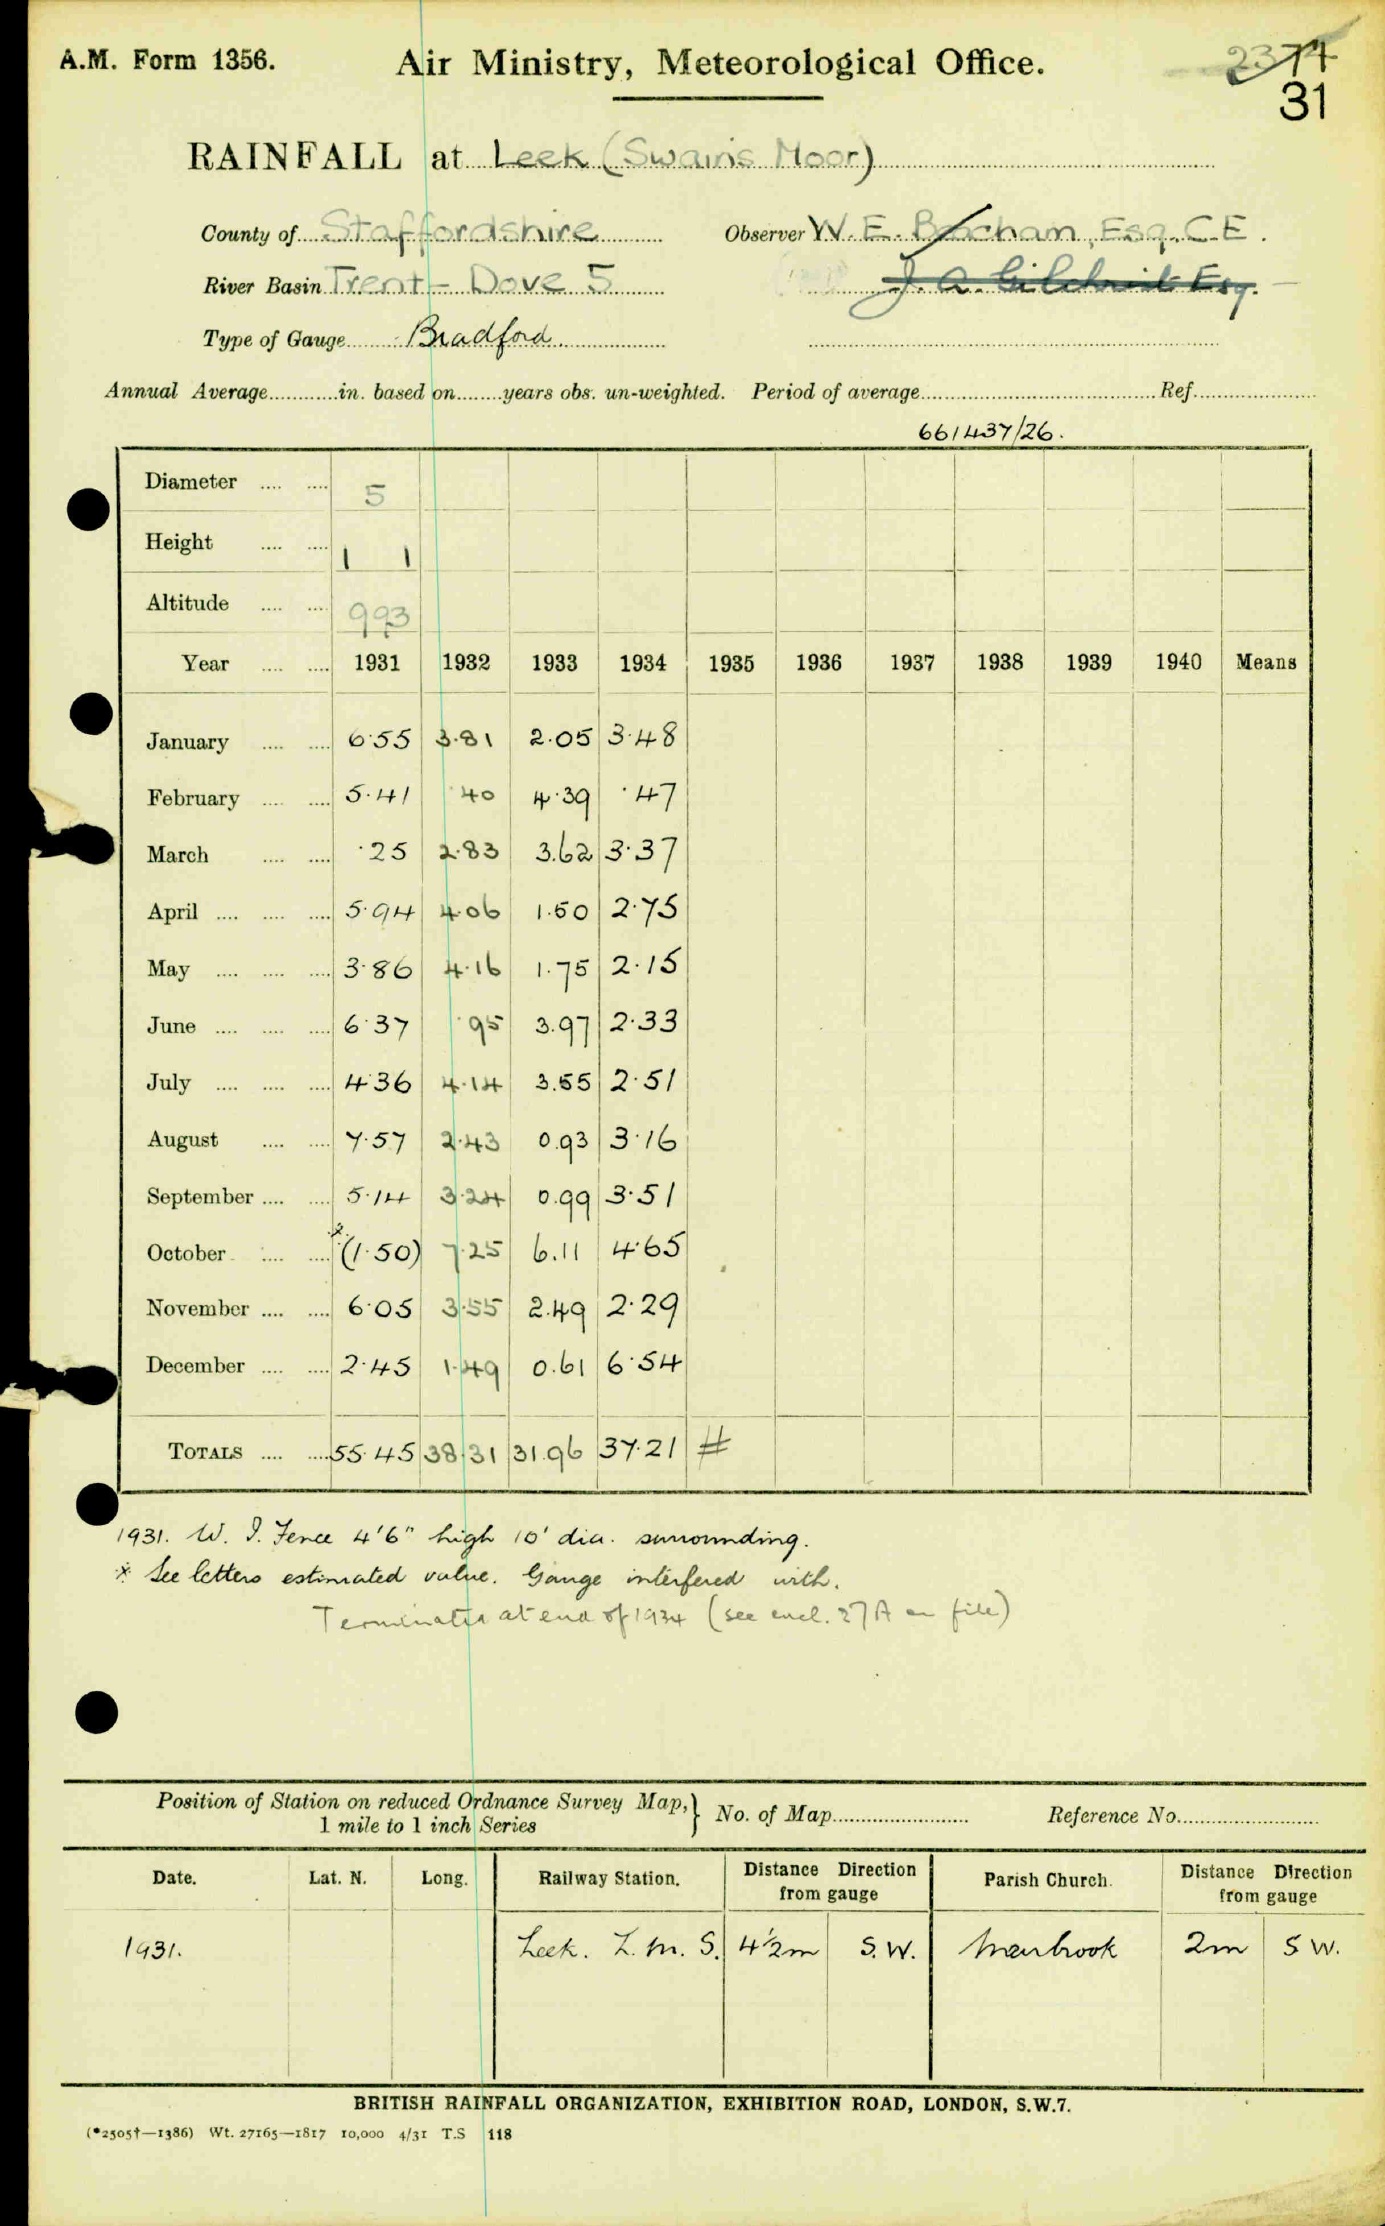 A.M. Form 1356.
Air Ministry, Meteorological Office.
31
RAINFALL at Leek (Swains Moor)
County of Staffordshire Observer W. E. Beacham, Esq. C.E.
River Basin Trent - Dove 5 J. A. Gilchrist Esq.
Type of Gauge Bradford
Annual Average in. based on years obs. un-weighted. Period of average Ref.
661437/26.
Diameter 5
Height 1 1
Altitude 993
Year 1931 1932 1933 1934 1935 1936 1937 1938 1939 1940 Means
January 6.55 3.81 2.05 3.48
February 5.41 .40 4.39 .47
March .25 2.83 3.62 3.37
April 5.94 4.06 1.50 2.75
May 3.86 4.16 1.75 2.15
June 6.37 .95 3.97 2.33
July 4.36 4.14 3.55 2.51
August 7.57 2.43 0.93 3.16
September 5.14 3.24 0.99 3.51
October *(1.50) 7.25 6.11 4.65
November 6.05 3.55 2.49 2.29
December 2.45 1.49 0.61 6.54
TOTALS 55.45 38.31 31.96 37.21 #
1931. W. I. Fence 4'6" high 10' dia. surrounding.
* See letters estimated value. Gauge interfered with.
Terminated at end of 1934 (see encl. 27A on file)
Position of Station on reduced Ordnance Survey Map,
1 mile to 1 inch Series } No. of Map Reference No.
Date. Lat. N. Long. Railway Station. Distance Direction from gauge Parish Church. Distance Direction from gauge
1931. Leek. L. M. S. 4½m S.W. Meerbrook 2m S W.
BRITISH RAINFALL ORGANIZATION, EXHIBITION ROAD, LONDON, S.W.7.
(*2505†—1386) Wt. 27165—1817 10,000 4/31 T.S 118